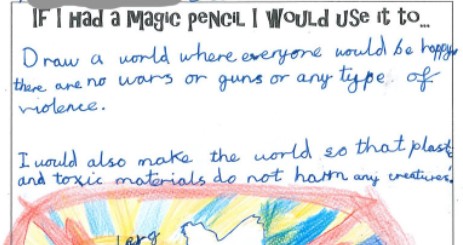 IF I HAD A MAGIC PENCIL I WOULD USE IT TO...
Draw a world where everyone would be happy,
there are no wars or guns or any type of
violence.
I would also make the world so that plast
and toxic materials do not harm any creatures.